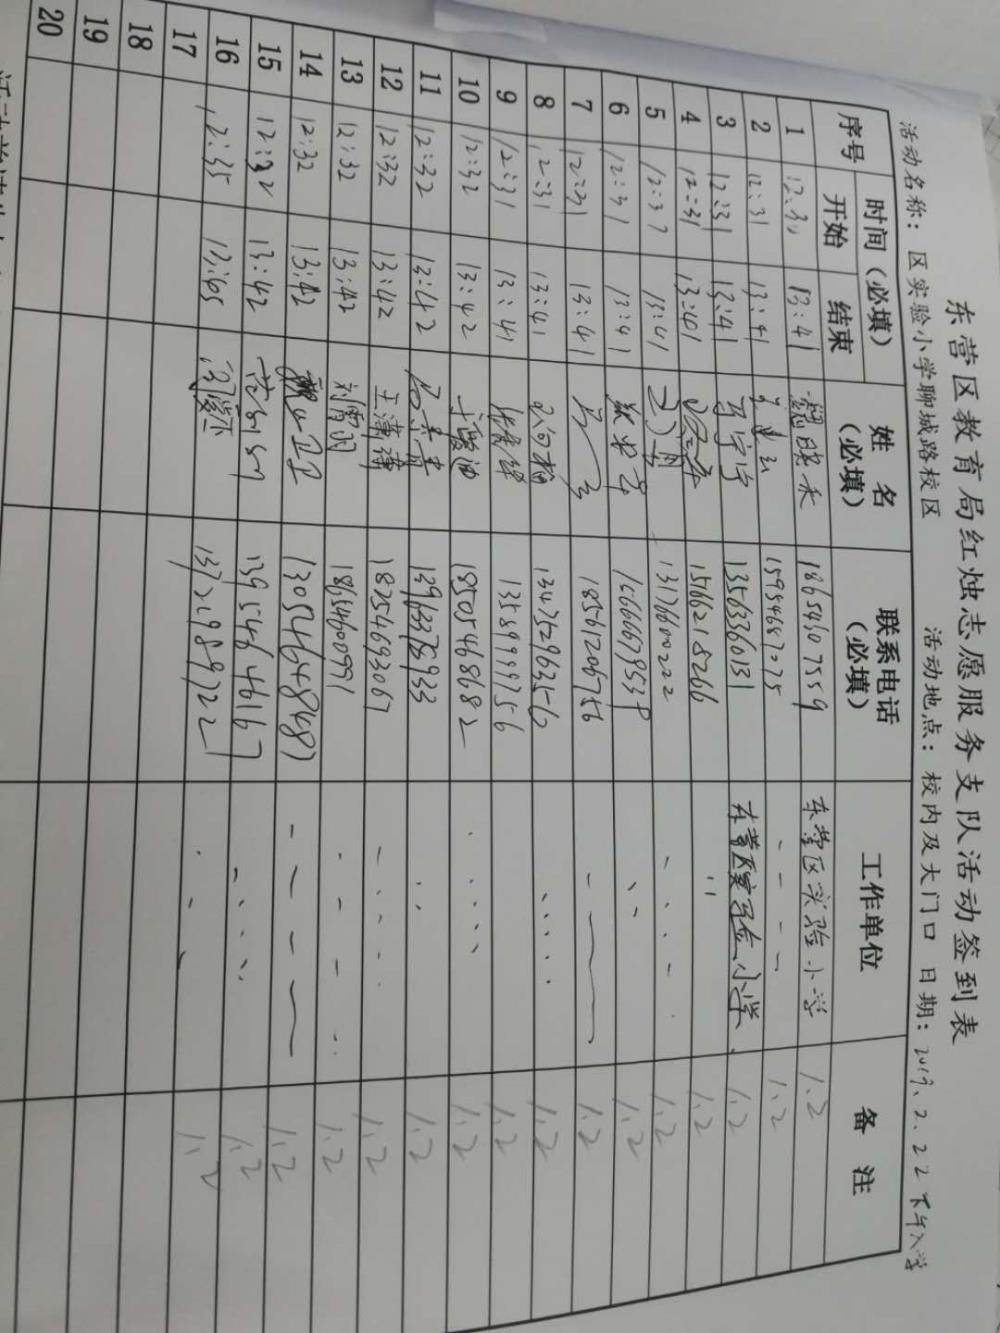 东营区教育局红烛志愿服务支队活动签到表
活动名称：区实验小学聊城路校区 活动地点：校内及大门口 日期：2019.2.22 下午入学
序号 时间（必填） 姓名（必填） 联系电话（必填） 工作单位 备注
开始 结束
1 12:30 13:41 晓禾 18654607559 东营区实验小学 1.2
2 12:31 13:41 15954687075 1.2
3 12:31 13:41 马宁宁 13563366131 东营区实验小学 1.2
4 12:31 13:41 15666218266 〃 1.2
5 12:31 13:41 13176600222 1.2
6 12:31 13:41 1.2
7 12:31 13:41 18561206756 1.2
8 12:31 13:41 13475296356 1.2
9 12:31 13:41 13589999756 1.2
10 12:32 13:42 18505468682 1.2
11 12:32 13:42 1.2
12 12:32 13:42 王潇潇 18254693067 1.2
13 12:32 13:42 刘雪羽 18654600971 1.2
14 12:32 13:42 13054648487 1.2
15 12:32 13:42 13954646167 1.2
16 12:35 13:45 13721989722 1.2
17
18
19
20